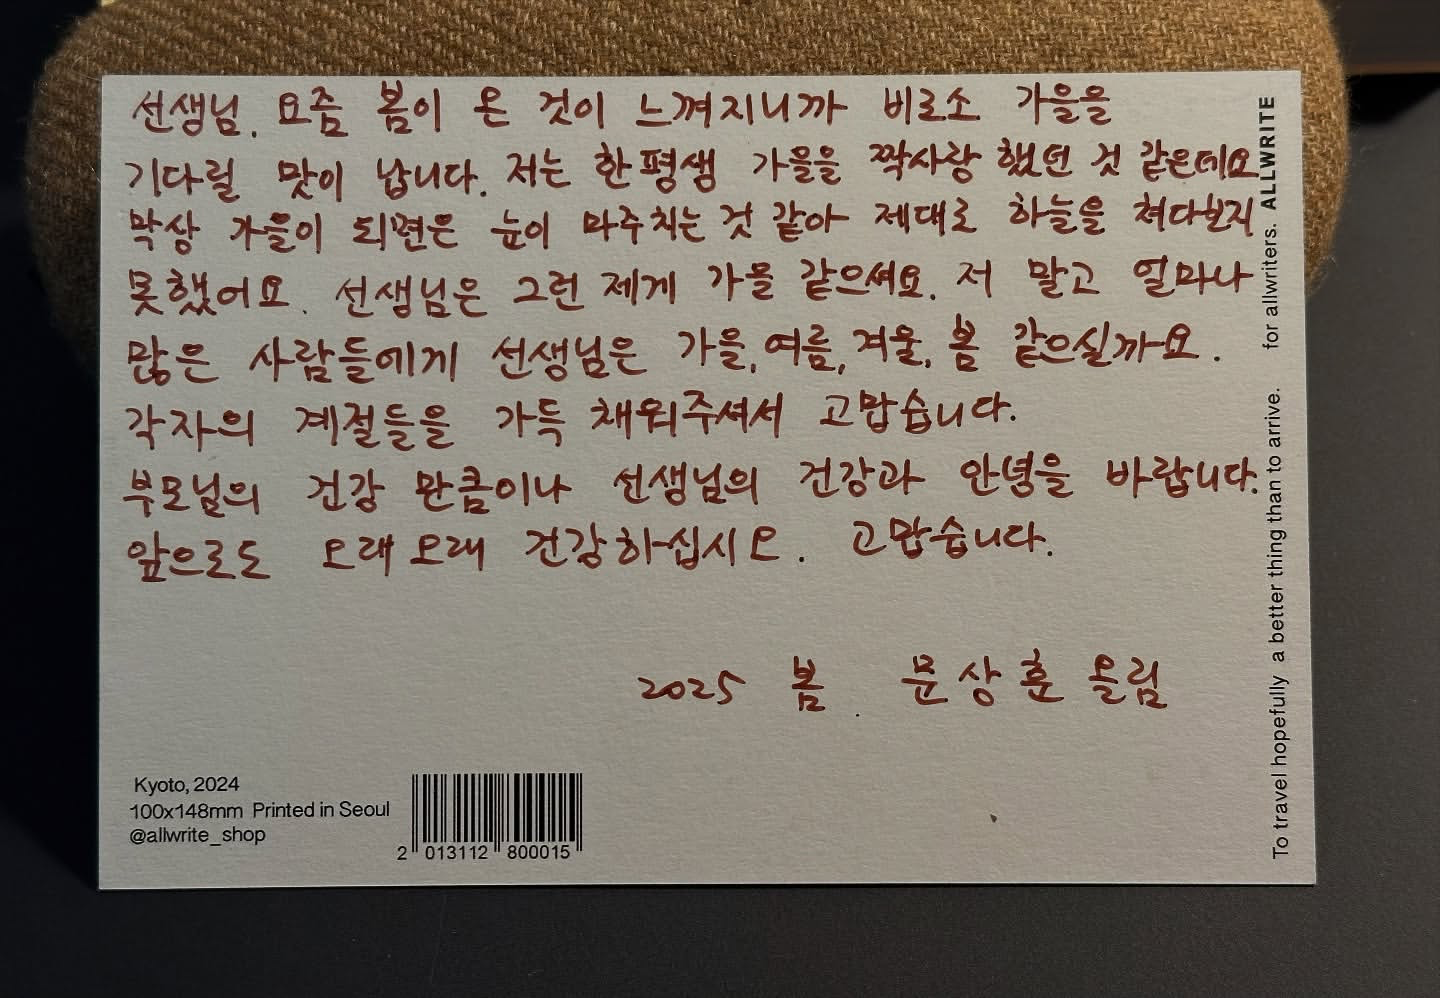 선생님. 요즘 봄이 온 것이 느껴지니까 비로소 가을을
기다릴 맛이 납니다. 저는 한평생 가을을 짝사랑 했던 것 같은데요
막상 가을이 되면은 눈이 마주치는 것 같아 제대로 하늘을 쳐다보지
못했어요. 선생님은 그런 제게 가을 같으셔요. 저 말고 얼마나
많은 사람들에게 선생님은 가을, 여름, 겨울, 봄 같으실까요.
각자의 계절들을 가득 채워주셔서 고맙습니다.
부모님의 건강 만큼이나 선생님의 건강과 안녕을 바랍니다.
앞으로도 오래오래 건강하십시오. 고맙습니다.
2025 봄. 문상훈 올림
Kyoto, 2024
100x148mm Printed in Seoul
@allwrite_shop
2 013112 800015
To travel hopefully a better thing than to arrive. for allwriters. ALLWRITE